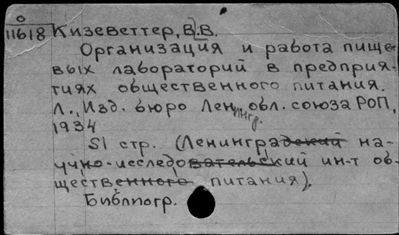 О
11618 Кизеветтер, В.В.
Организация и работа пище-
вых лабораторий в предприя-
тиях общественного питания.
Л., Изд. бюро Ленингр. обл. союза РОП,
1934
51 стр. (Ленинградский на-
учно-исследовательский ин-т об-
щественного питания).
Библиогр.